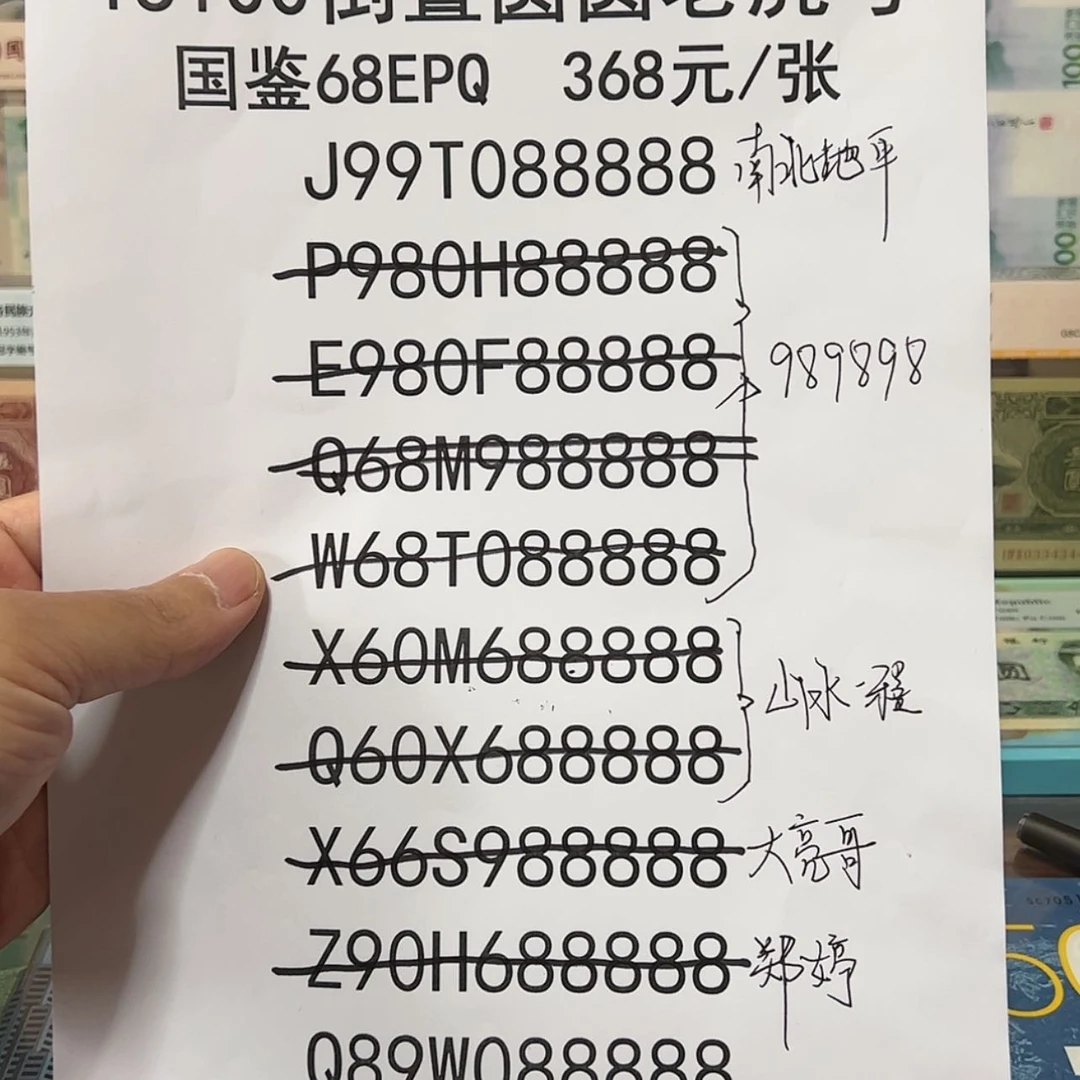 倒置圆圆老虎号
国鉴68EPQ 368元/张
J99T088888 南北地平
P980H88888
E980F88888 989898
Q68M988888
W68T088888
X60M688888 山水
Q60X688888
X66S988888 大亮哥
Z90H688888 郑婷
Q89W088888